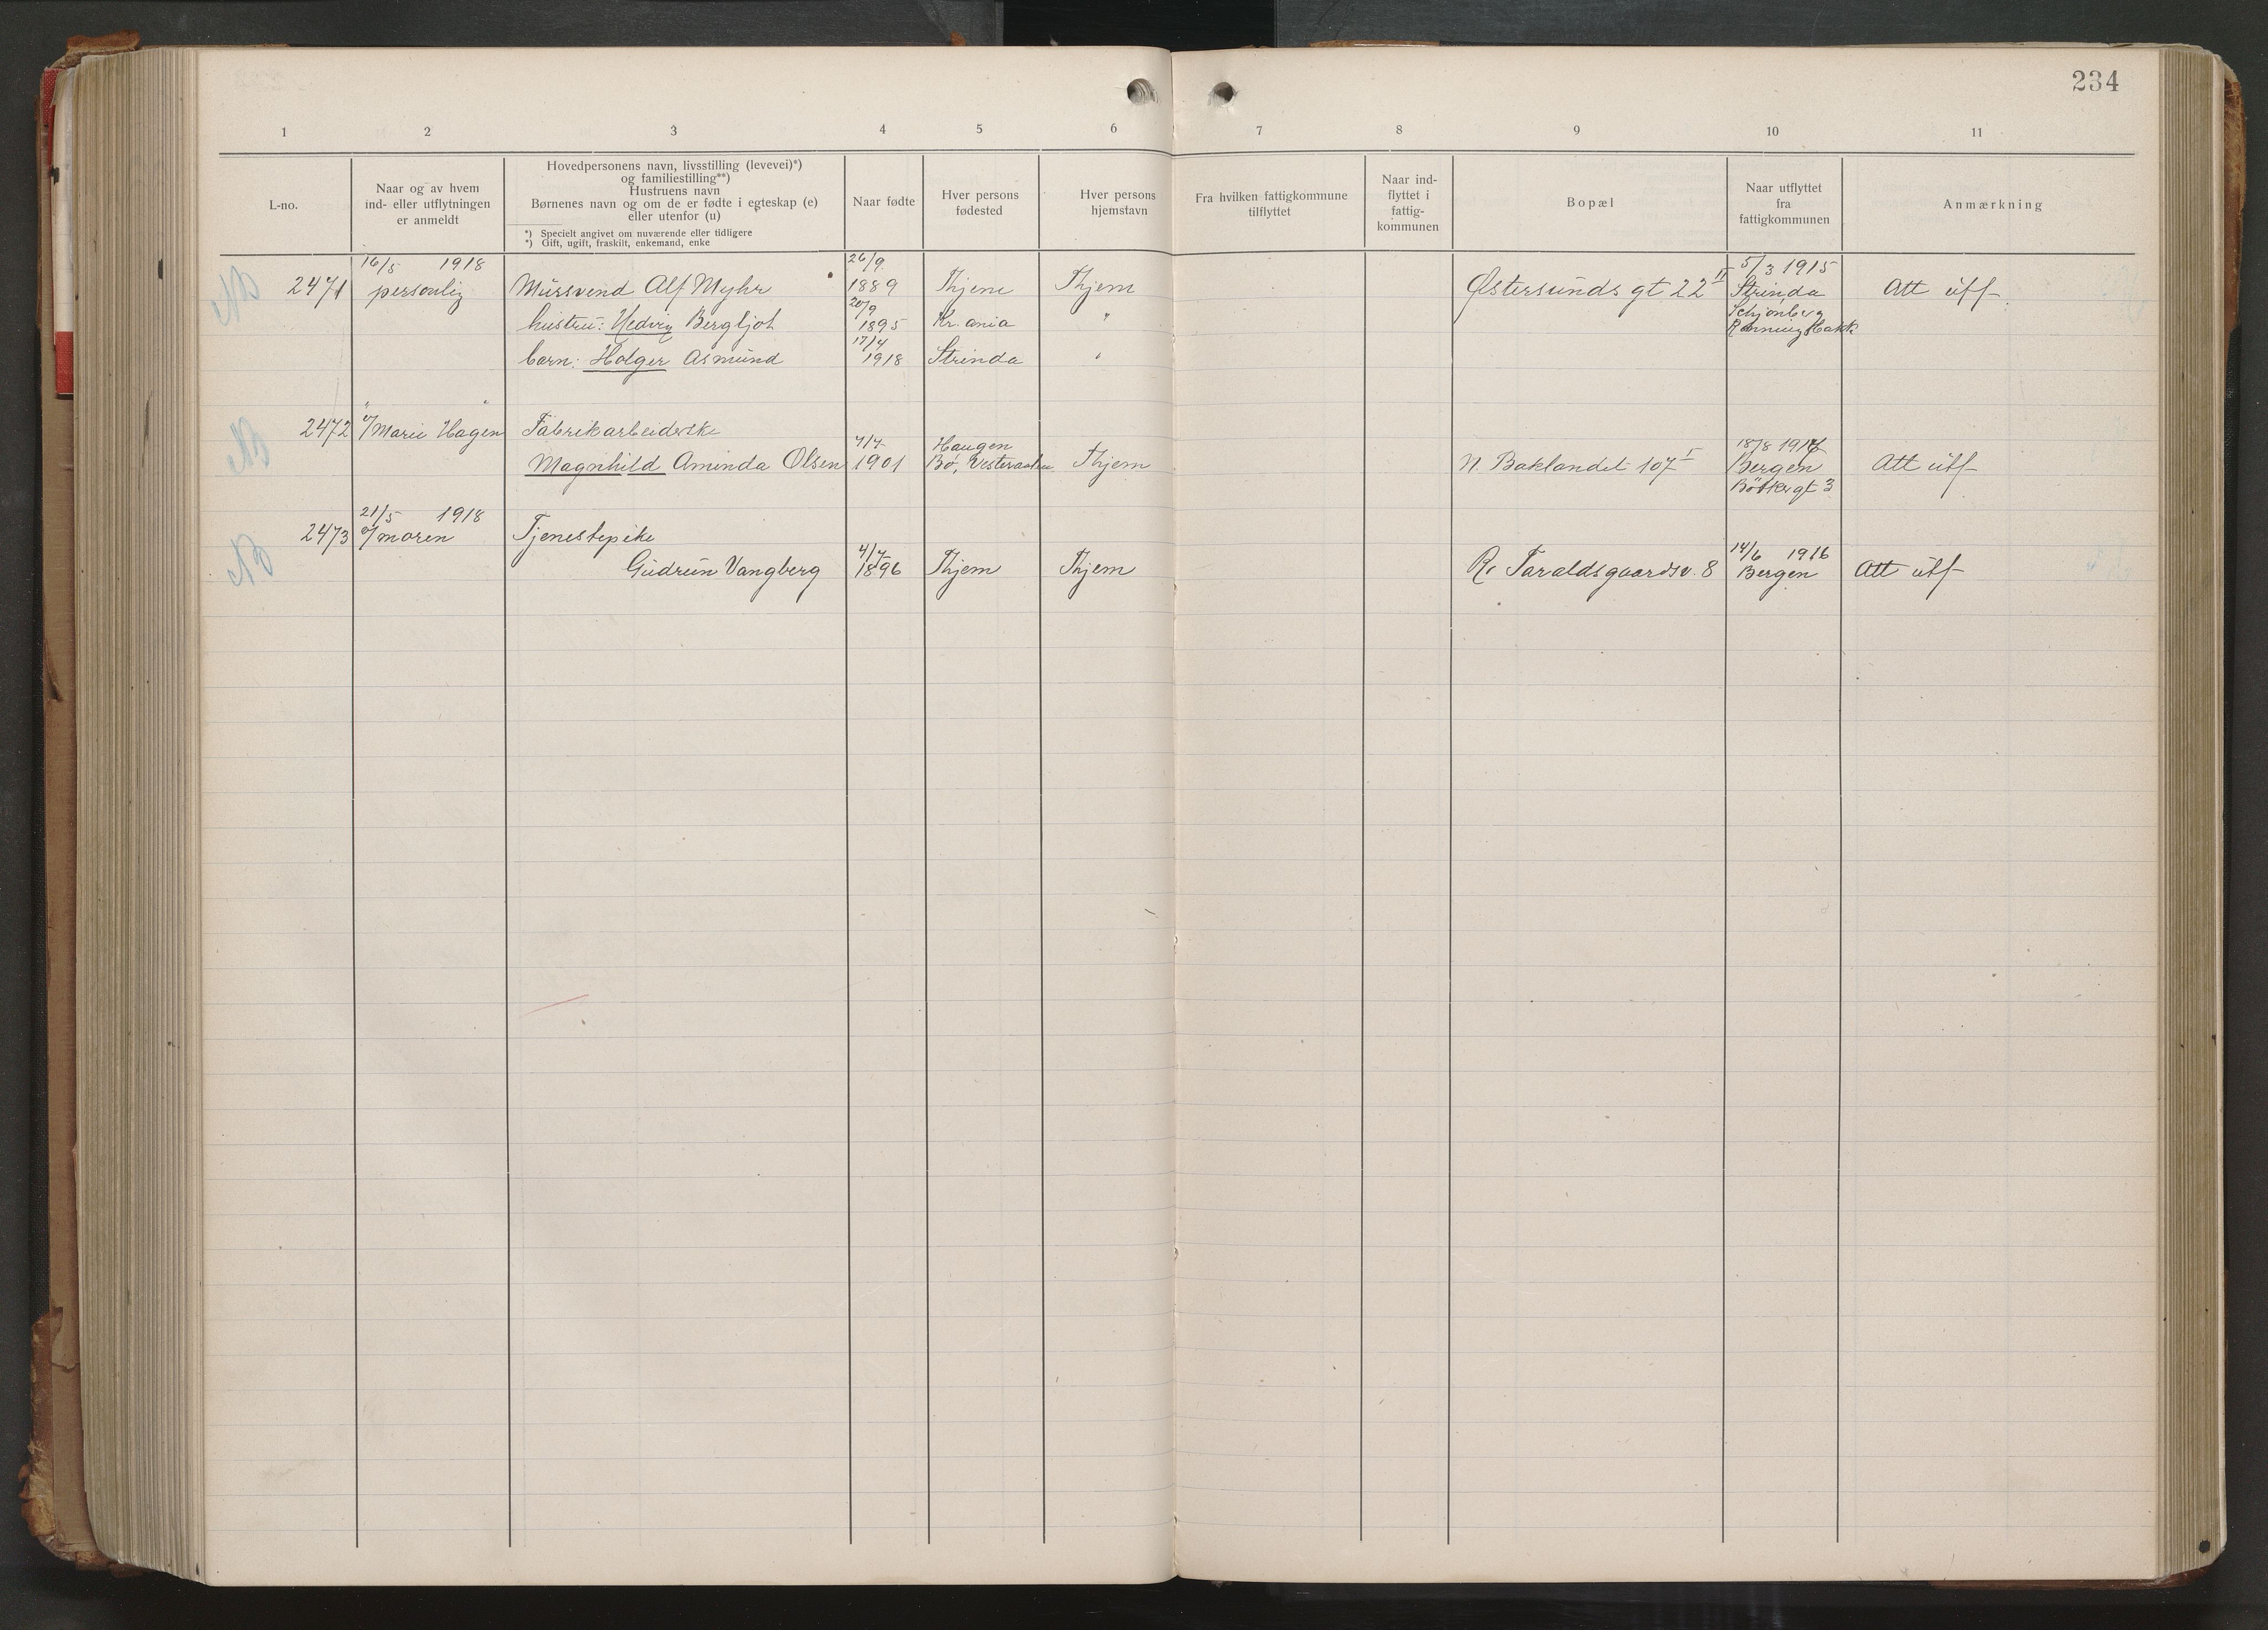 234
1 2 3 4 5 6 7 8 9 10 11
L-no.
Naar og av hvem
ind- eller utflytningen
er anmeldt
Hovedpersonens navn, livsstilling (levevei)*)
og familiestilling**)
Hustruens navn
Børnenes navn og om de er fødte i egteskap (e)
eller utenfor (u)
*) Specielt angivet om nuværende eller tidligere
*) Gift, ugift, fraskilt, enkemand, enke
Naar fødte
Hver persons
fødested
Hver persons
hjemstavn
Fra hvilken fattigkommune
tilflyttet
Naar ind-
flyttet i
fattig-
kommunen
Bopæl
Naar utflyttet
fra
fattigkommunen
Anmærkning
16/5 1918 26/9 5/3 1915
NB 2471 personlig Mursvend Alf Myhr 1889 Thjem Thjem Østersunds gt 22 II Strinda Att utf
20/9 Schjønberg
hustru: Hedvig Bergljot 1895 Kr.ania "
17/4
barn: Holger Asmund 1918 Strinda "
" "
NB 2472 v/ Marie Hagen Fabrikarbeiderske
7/7 Haugen 18/8 1917
Magnhild Aminda Olsen 1901 Bø, Vesteraalen Thjem N. Baklandet 107 I Bergen Att utf
gt 3
21/5 1918
NB 2473 v/ moren Tjenestepike
4/7 14/6 1916
Gudrun Vangberg 1896 Thjem Thjem R. Taraldsgaardsv. 8 Bergen Att utf